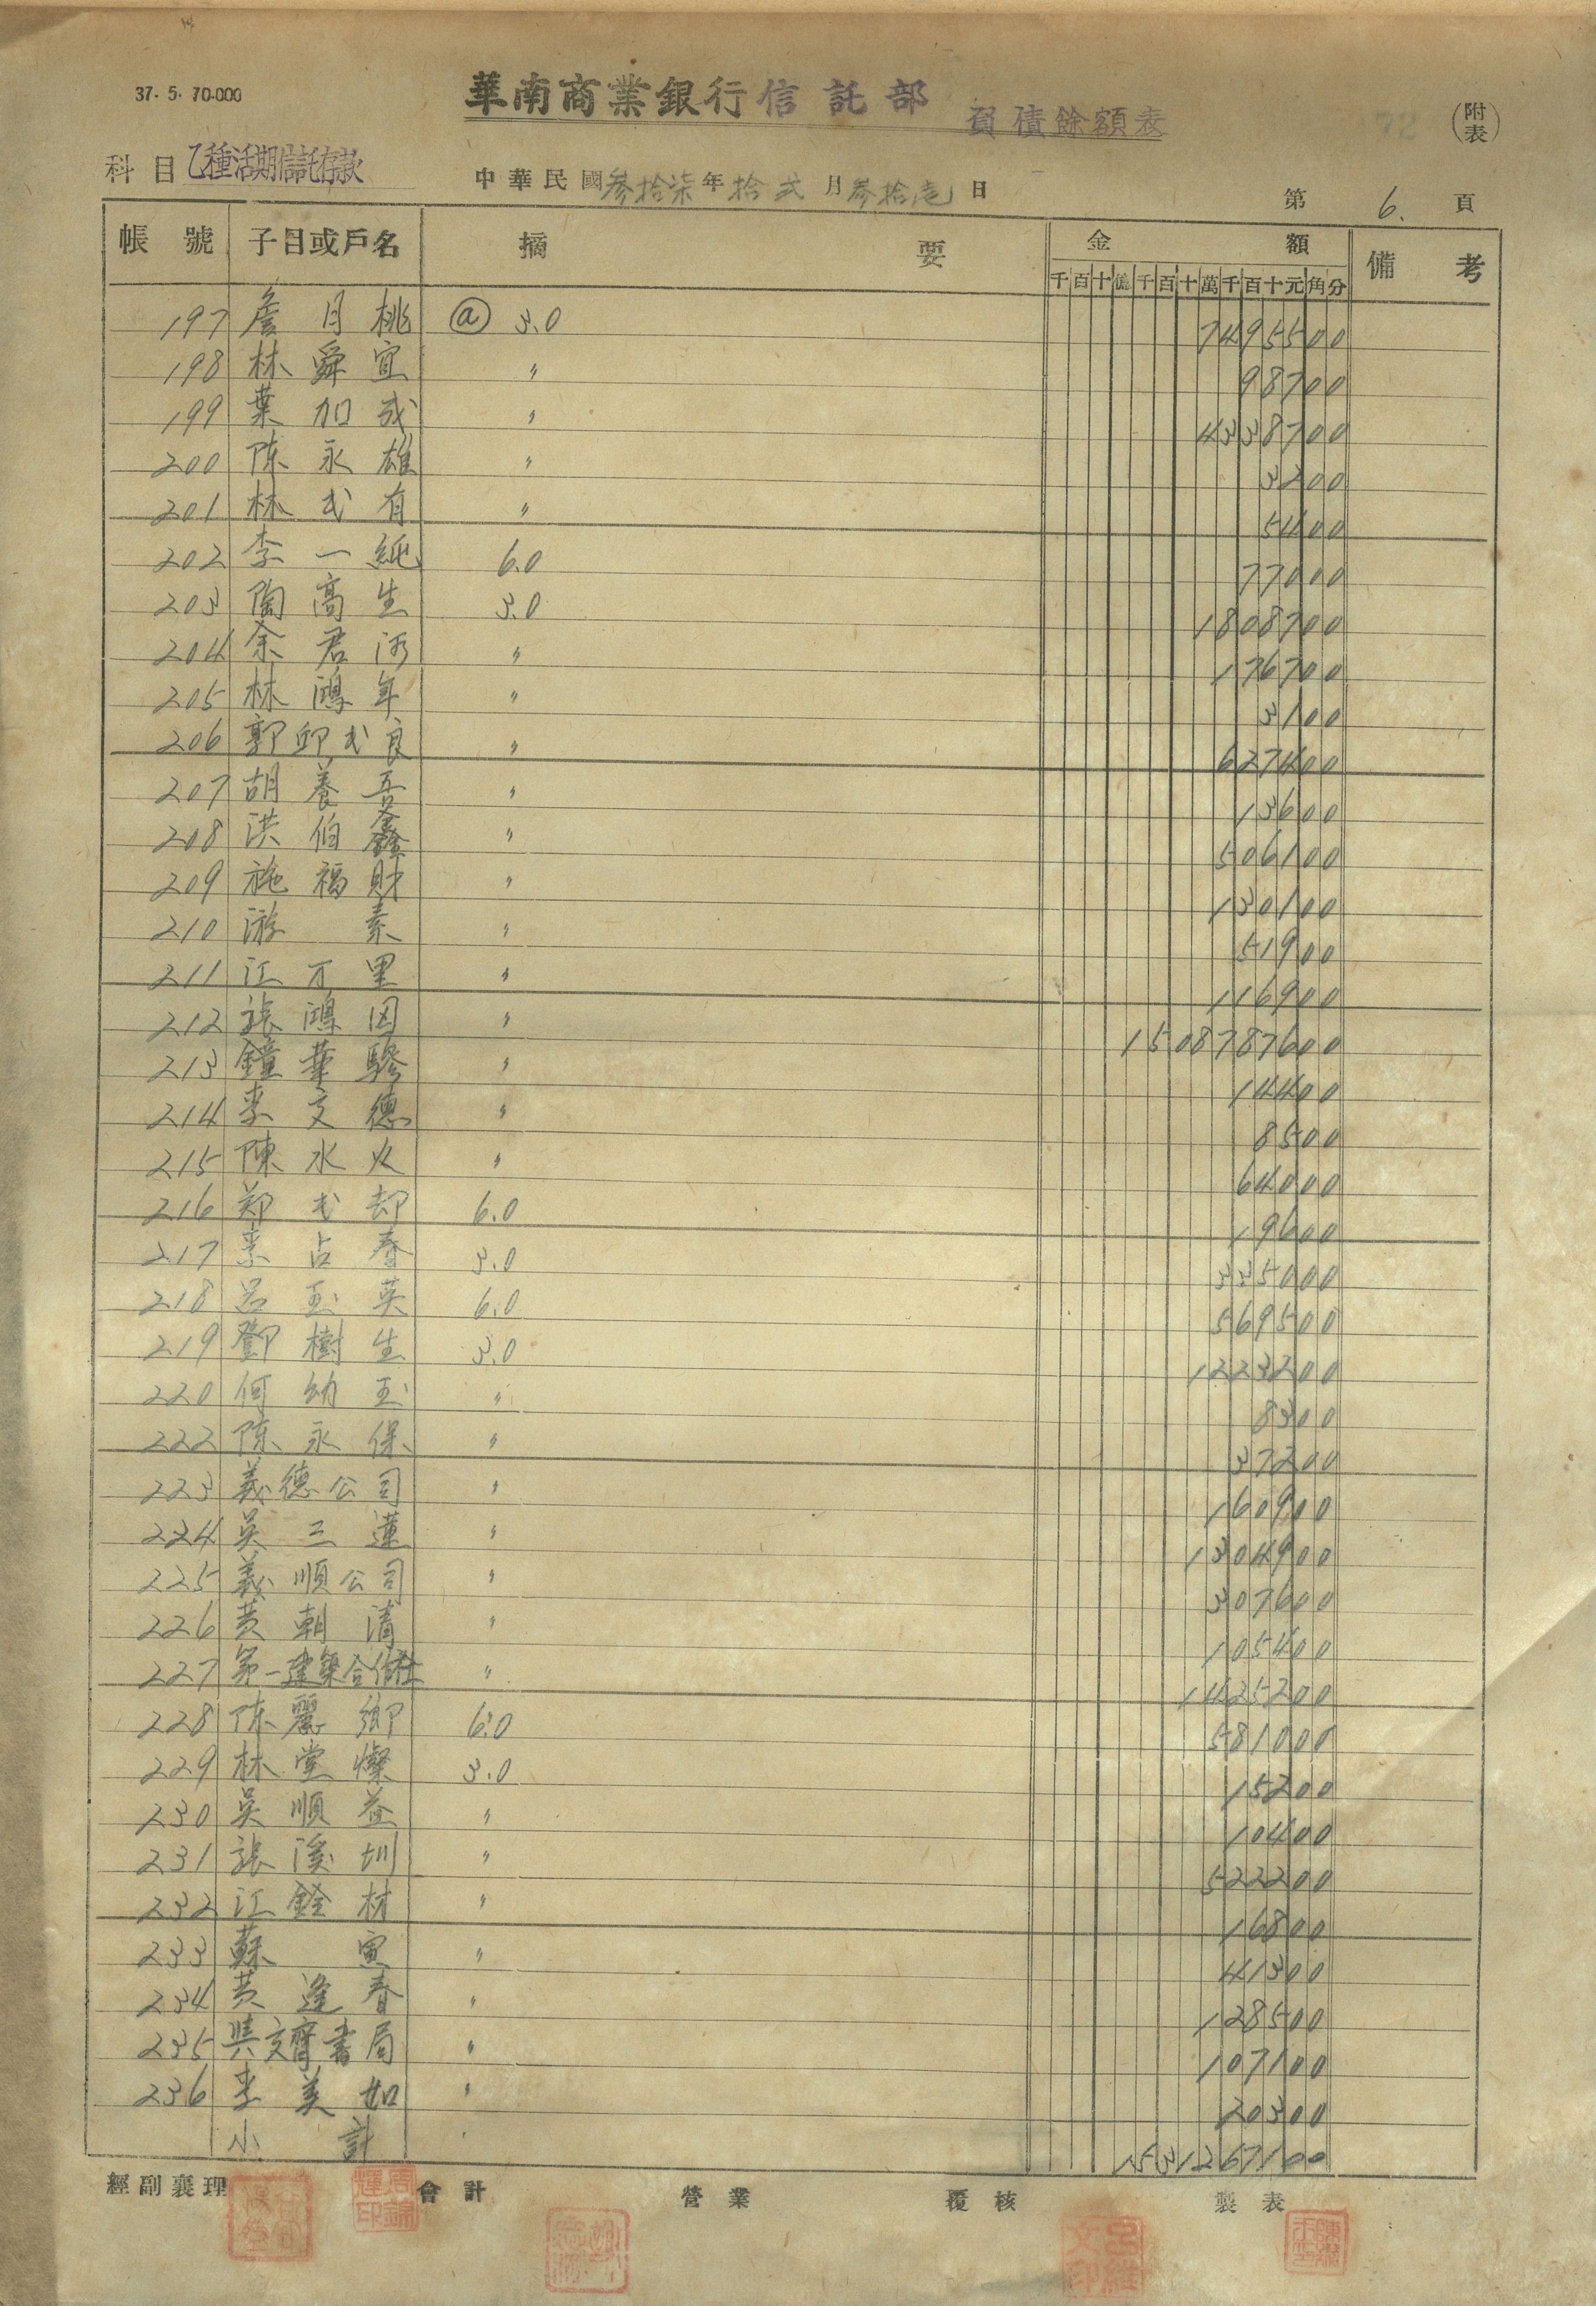 37. 5. 70.000
華南商業銀行信託部 負債餘額表 72 (附表)
科目 乙種活期信託存款 中華民國叁拾柒年拾弍月叁拾壱日 第 6. 頁
帳號 子目或戶名 摘要 金額 備考
千百十億千百十萬千百十元角分
197 詹月桃 @ 3.0 7495500
198 林舜宜 〃 98700
199 葉加成 〃 4338700
200 陈永雄 〃 3200
201 林氏有 〃 5400
202 李一純 6.0 77000
203 陶高生 3.0 1808700
204 余君河 〃 176700
205 林鴻年 〃 3100
206 郭邱氏良 〃 627400
207 胡養吾 〃 13600
208 洪伯鑫 〃 506100
209 施福財 〃 130100
210 游素 〃 51900
211 江万里 〃 116900
212 張鴻図 〃 1508787600
213 鐘華驂 〃 14400
214 李文德 〃 8500
215 陳水火 〃 64000
216 郑氏却 6.0 19600
217 李占春 3.0 335000
218 呂玉英 6.0 569500
219 鄧樹生 3.0 1223200
220 何幼玉 〃 8300
222 陈永保 〃 37200
223 義德公司 〃 160900
224 吳三蓮 〃 1304900
225 義順公司 〃 307600
226 黄朝清 〃 105400
227 第一建築合作社 〃 1425200
228 陈麗卿 6.0 581000
229 林堂燦 3.0 15200
230 吳順益 〃 10400
231 張溪圳 〃 522200
232 江銓材 〃 16800
233 蘇寅 〃 41300
234 黄逢春 〃 128500
235 興文齊書局 〃 107100
236 李美如 〃 20300
小計 1531267100
經副襄理 會計 營業 覆核 製表